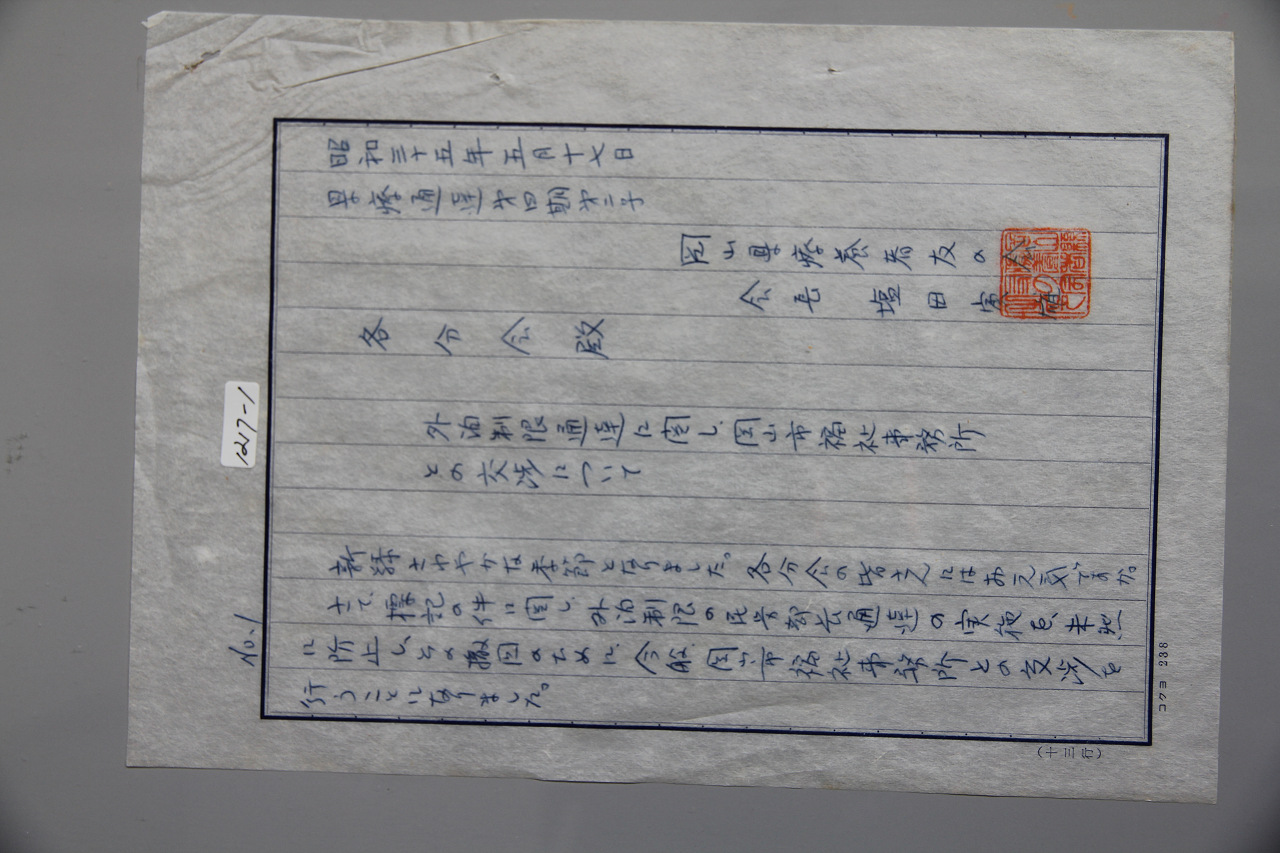 No.1
1217-1
昭和三十五年五月十七日
県療通達第四期第二号
岡山県療養者友の会
会長 塩田
各分会殿
外泊制限通達に関し、岡山市福祉事務所
との交渉について
新緑さわやかな季節となりました。各分会の皆さんにはお元気ですか。
さて、標記の件に関し、外泊制限の民労部長通達の実施を、未然
に阻止し、その撤回のために、今般、岡山市福祉事務所との交渉を
行うことになりました。
コクヨ 238
(十三行)